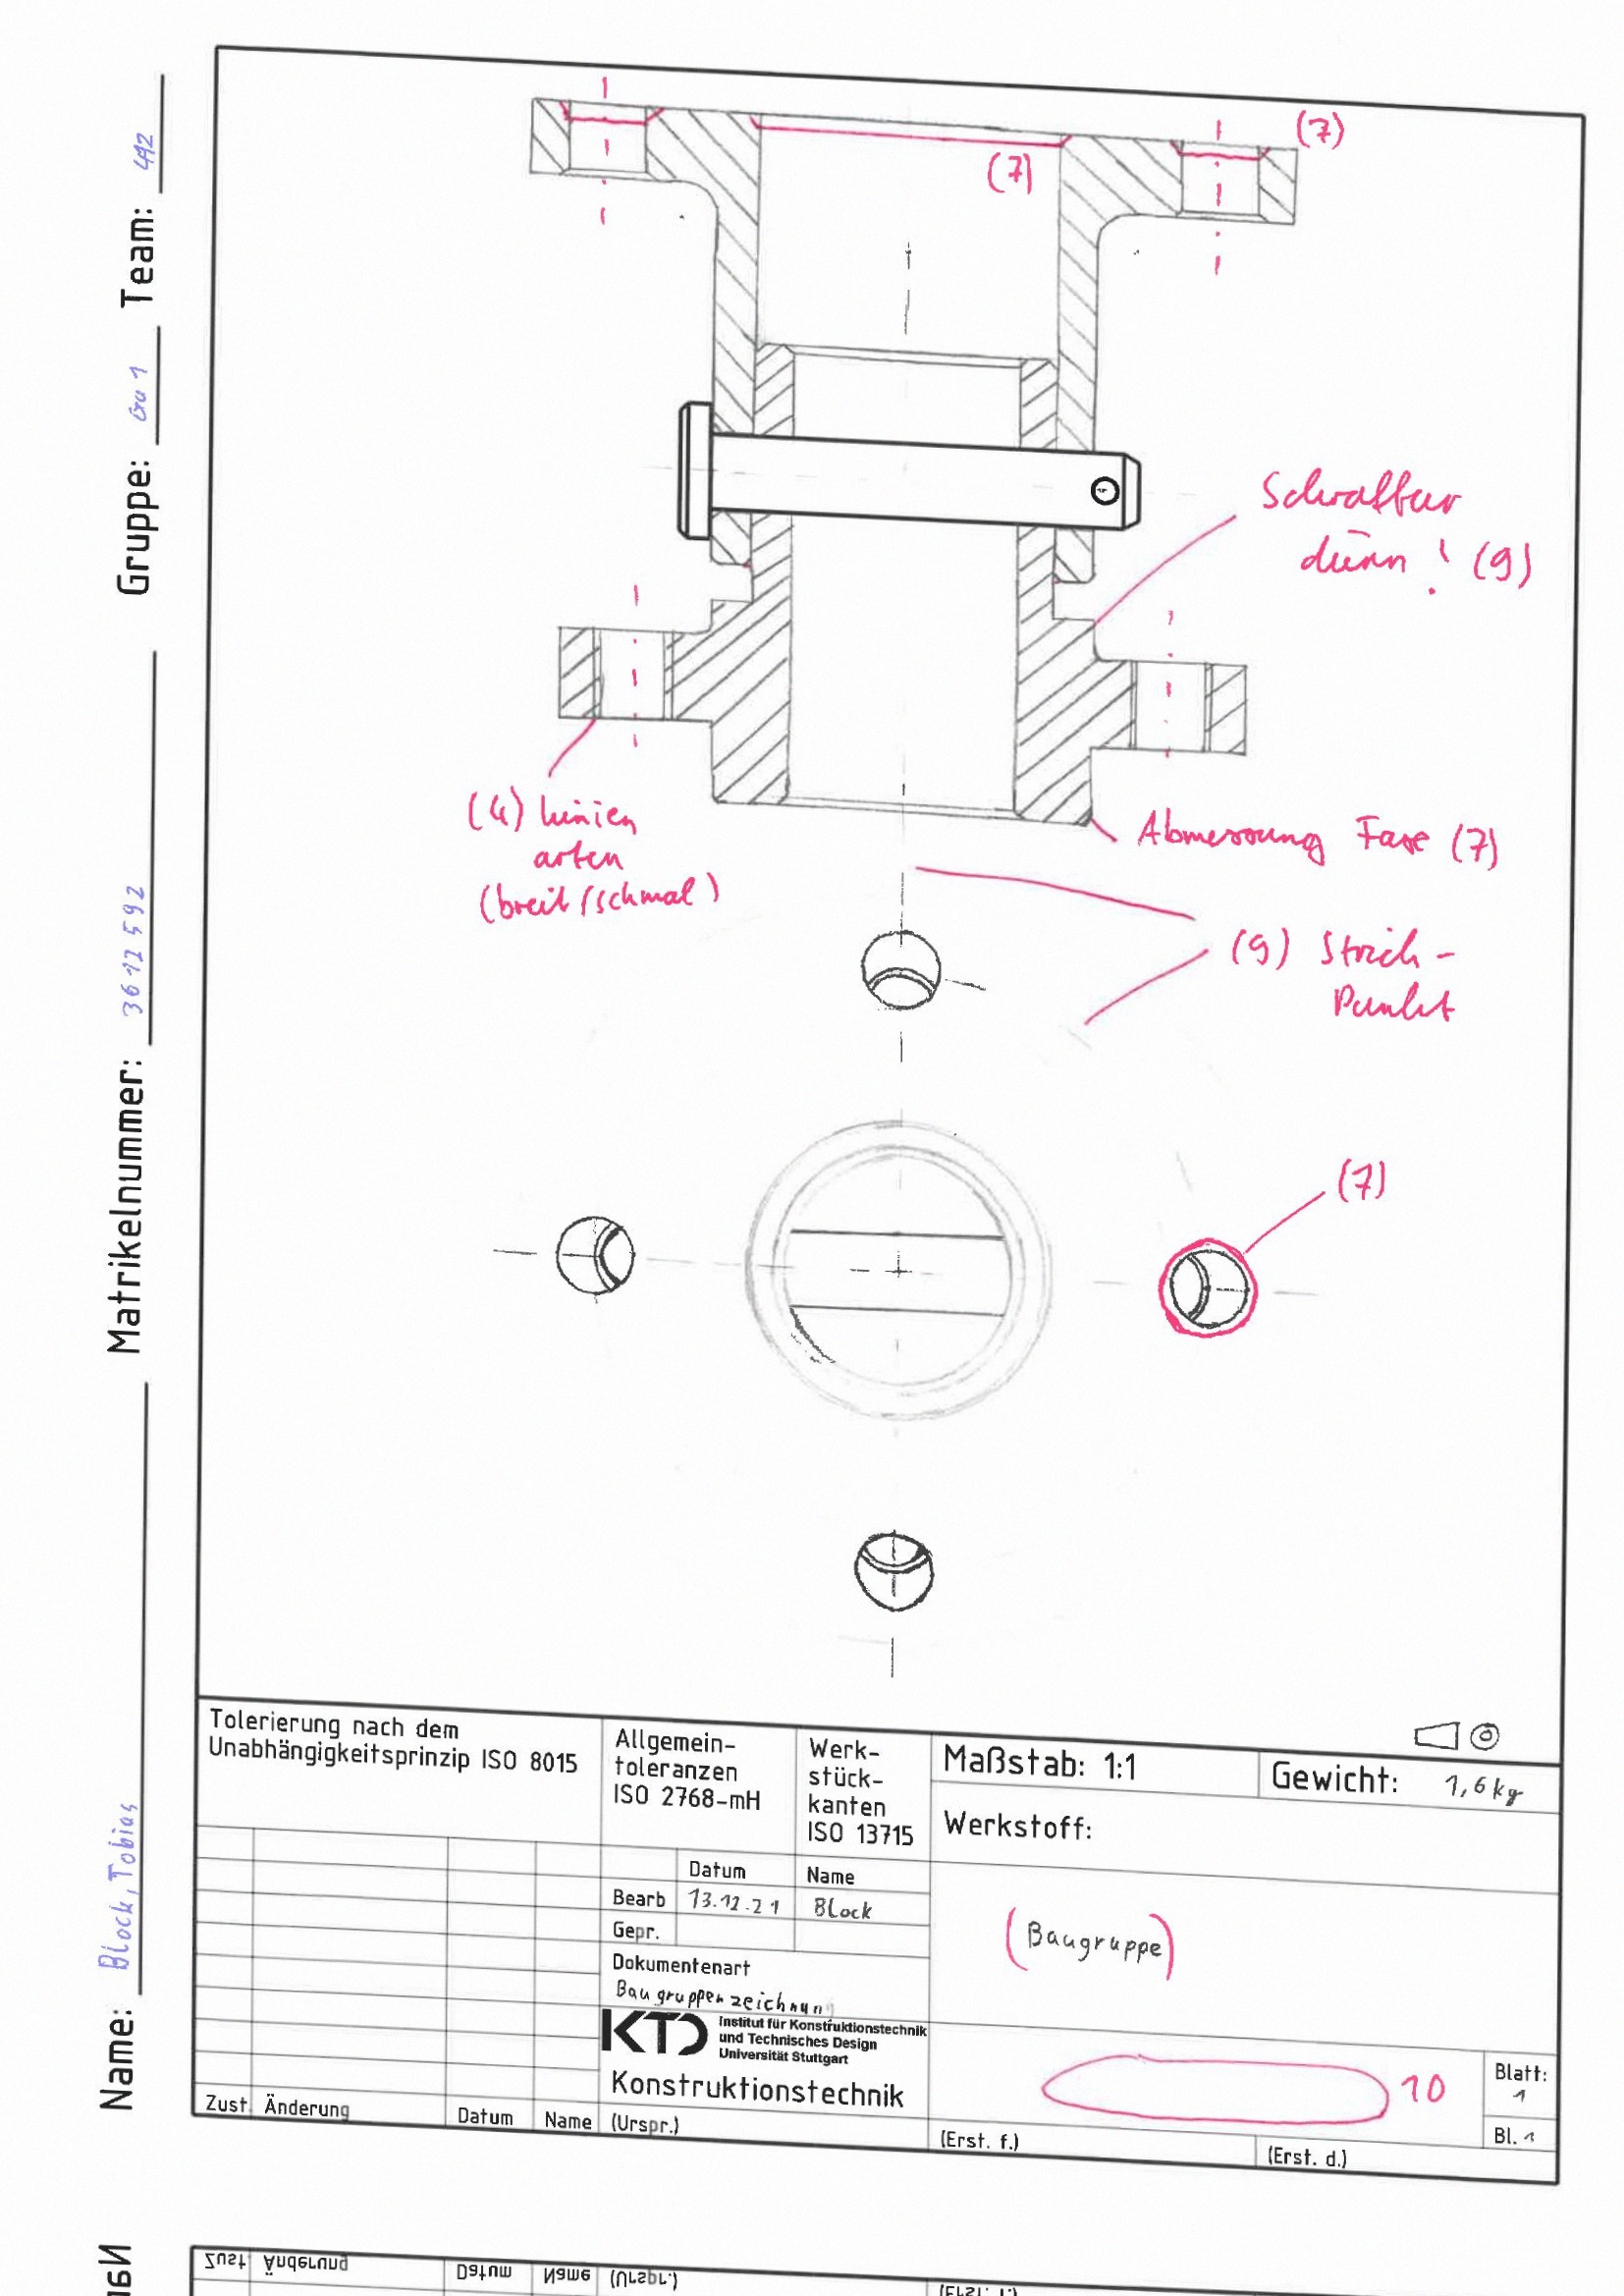 Name: Block, Tobias Matrikelnummer: 3612592 Gruppe: Gu 1 Team: 492
(7)
(7)
Schraffur
dünn! (9)
(4) Linien
arten
(breit/schmal)
Abmessung Fase (7)
(9) Strich-
Punkt
(7)
Tolerierung nach dem
Unabhängigkeitsprinzip ISO 8015
Allgemein-
toleranzen
ISO 2768-mH
Werk-
stück-
kanten
ISO 13715
Maßstab: 1:1
Gewicht: 1,6kg
Werkstoff:
Datum Name
Bearb 13.12.21 Block
Gepr.
Dokumentenart
Baugruppenzeichnung
(Baugruppe)
KTD
Institut für Konstruktionstechnik
und Technisches Design
Universität Stuttgart
Konstruktionstechnik
10
Blatt:
1
Bl. 1
Zust. Änderung Datum Name (Urspr.)
(Erst. f.)
(Erst. d.)
Zust. Änderung Datum Name (Urspr.)